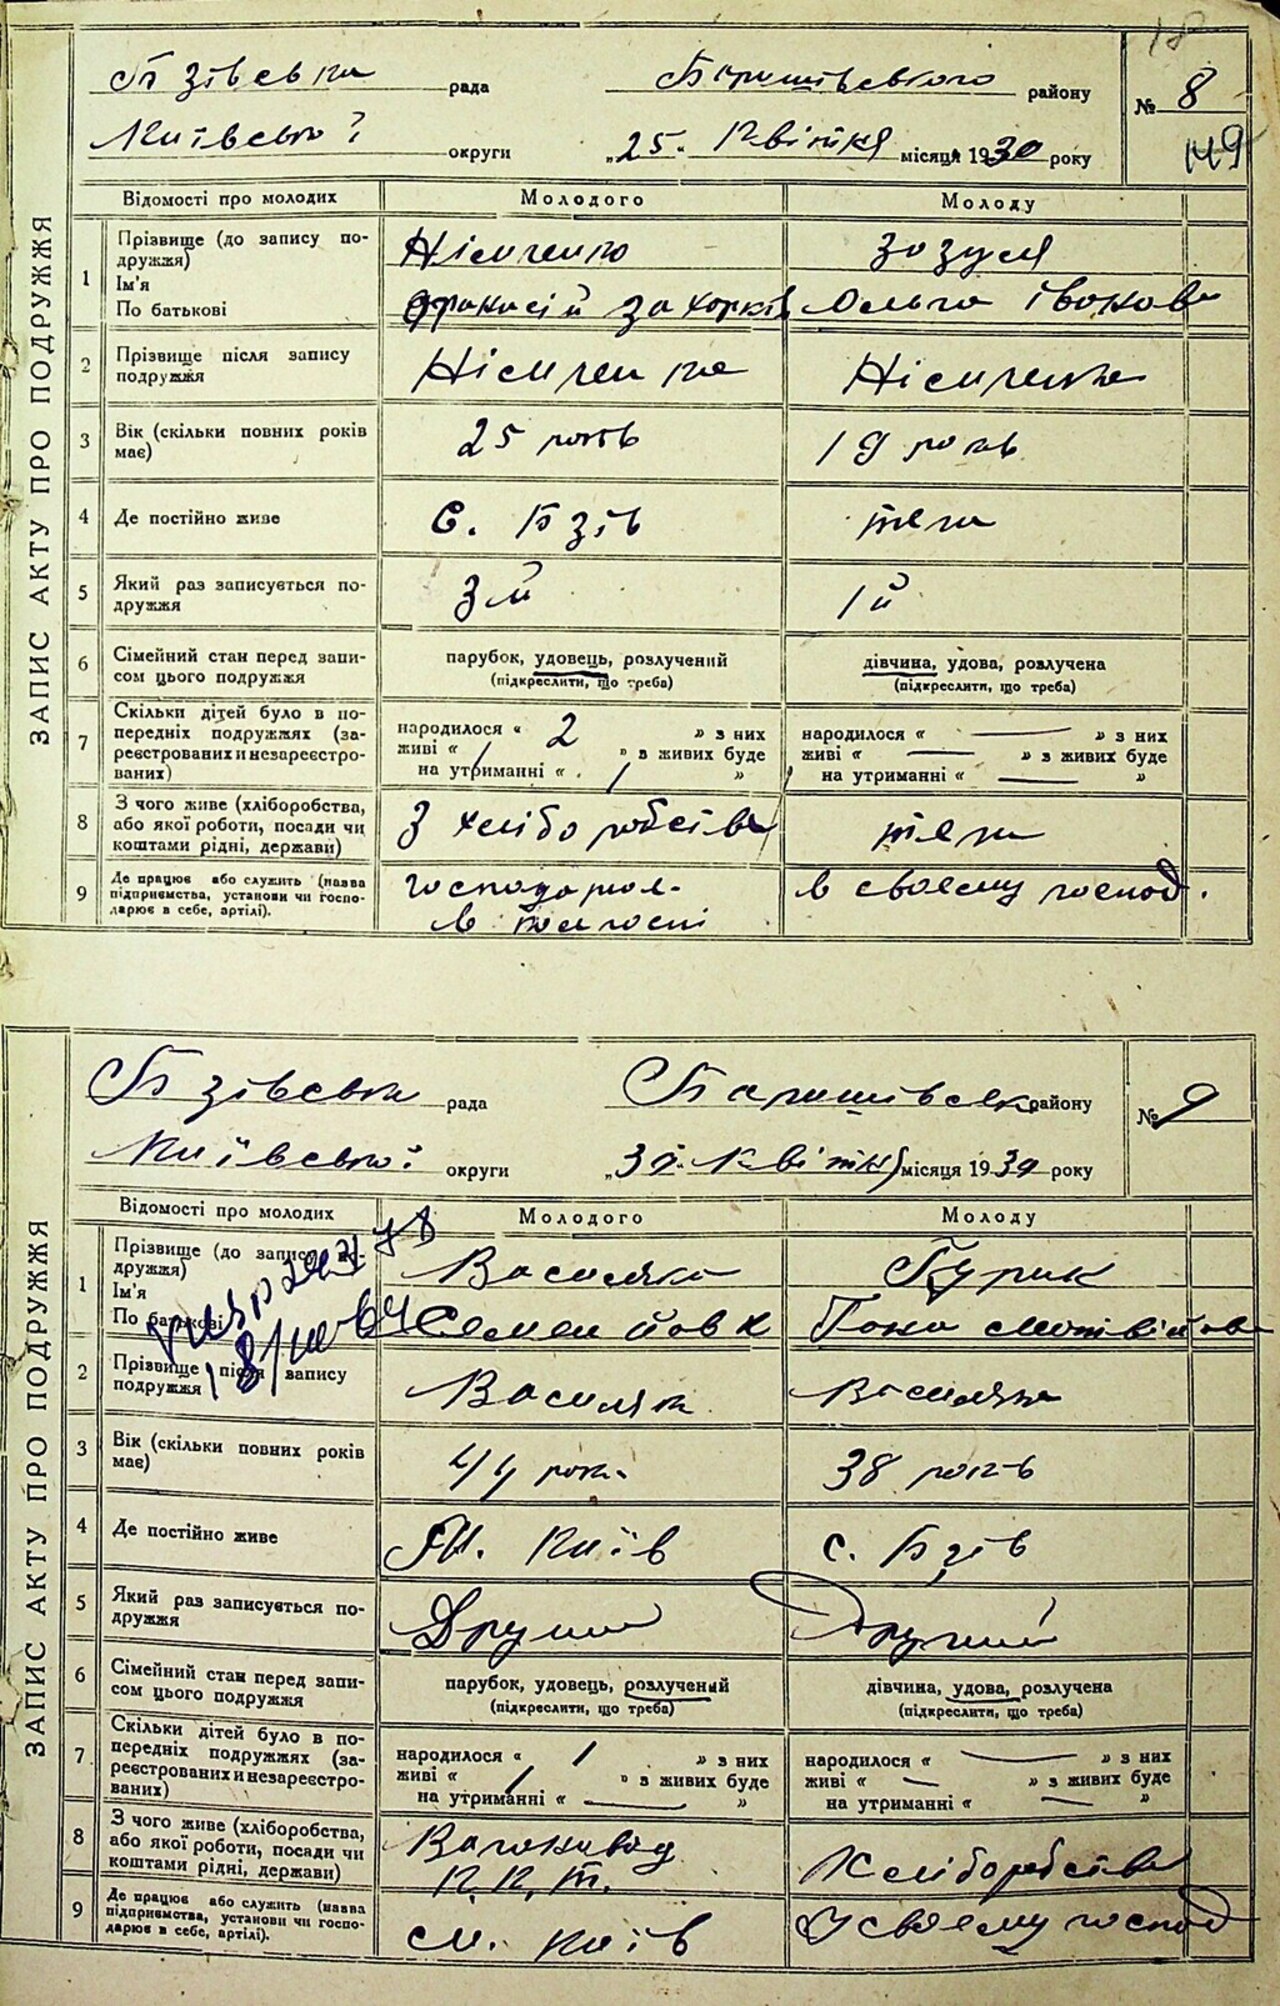 18
Бзівська рада Баришівського району № 8
Київської округи „25" Квітня місяця 1930 року 149
ЗАПИС АКТУ ПРО ПОДРУЖЖЯ
Відомості про молодих Молодого Молоду
1 Прізвище (до запису подружжя) Німченко Зозуля
Ім'я
По батькові Захарків Ольга Іванова
2 Прізвище після запису подружжя Німченко Німченко
3 Вік (скільки повних років має) 25 років 19 років
4 Де постійно живе с. Бзів теж
5 Який раз записується подружжя 3й 1й
6 Сімейний стан перед записом цього подружжя парубок, удовець, розлучений дівчина, удова, розлучена
(підкреслити, що треба) (підкреслити, що треба)
7 Скільки дітей було в попередніх подружжях (зареєстрованих и незареєстрованих) народилося « 2 » з них народилося « — » з них
живі « 1 » з живих буде живі « — » з живих буде
на утриманні « 1 » на утриманні « — »
8 З чого живе (хліборобства, або якої роботи, посади чи коштами рідні, держави) З хліборобства теж
9 Де працює або служить (назва підприємства, установи чи господарює в себе, артілі). господарює в своєму господ.
ЗАПИС АКТУ ПРО ПОДРУЖЖЯ
Бзівська рада Баришівськ району № 9
Київської округи „30" Квітня місяця 1930 року
Відомості про молодих Молодого Молоду
1 Прізвище (до запису подружжя) Василяка
Ім'я
По батькові Семен Йовк
2 Прізвище після запису подружжя Василяка Василяка
3 Вік (скільки повних років має) 44 роки 38 років
4 Де постійно живе М. Київ с. Бзів
5 Який раз записується подружжя Другий Другий
6 Сімейний стан перед записом цього подружжя парубок, удовець, розлучений дівчина, удова, розлучена
(підкреслити, що треба) (підкреслити, що треба)
7 Скільки дітей було в попередніх подружжях (зареєстрованих и незареєстрованих) народилося « 1 » з них народилося « — » з них
живі « 1 » з живих буде живі « — » з живих буде
на утриманні « — » на утриманні « — »
8 З чого живе (хліборобства, або якої роботи, посади чи коштами рідні, держави) Вагоновод Хліборобства
К. К. Т.
9 Де працює або служить (назва підприємства, установи чи господарює в себе, артілі). м. Київ У своєму господ